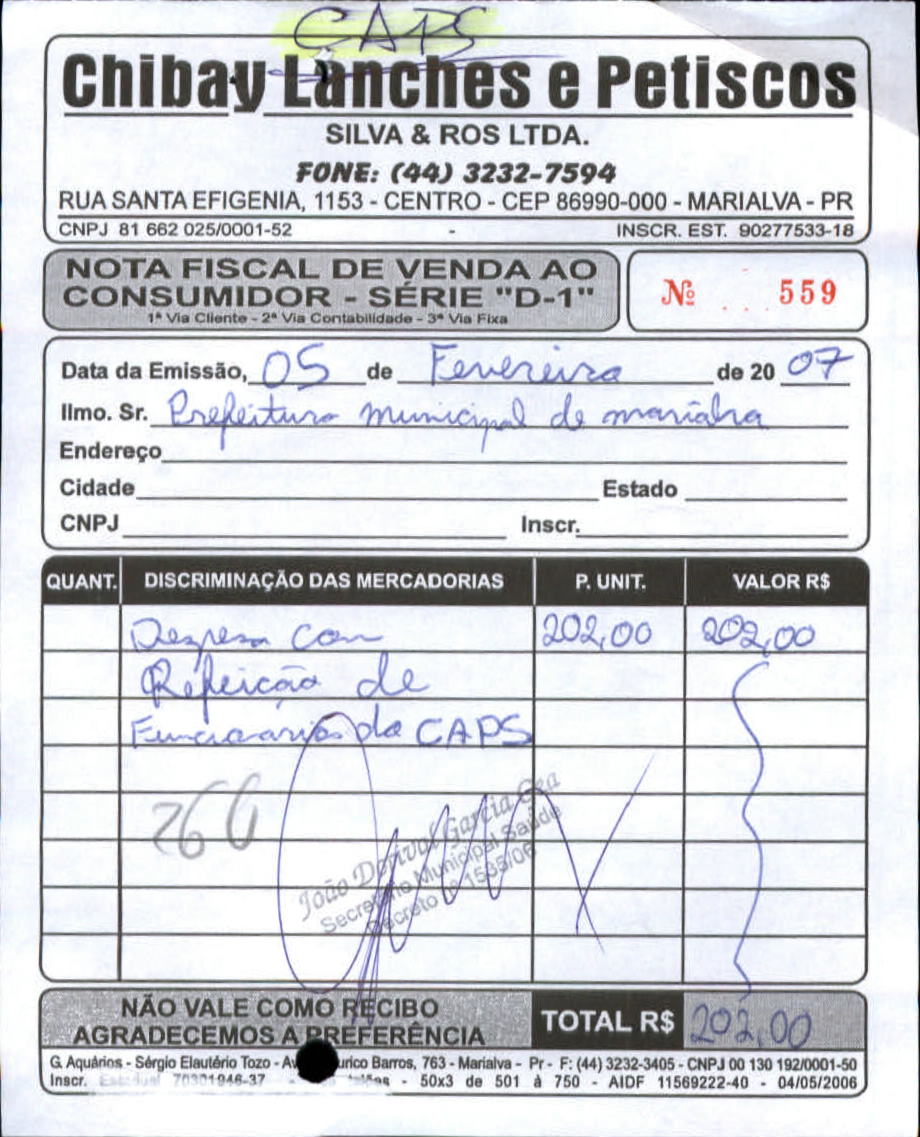 CAPS
Chibay Lanches e Petiscos
SILVA & ROS LTDA.
FONE: (44) 3232-7594
RUA SANTA EFIGENIA, 1153 - CENTRO - CEP 86990-000 - MARIALVA - PR
CNPJ 81 662 025/0001-52 - INSCR. EST. 90277533-18
NOTA FISCAL DE VENDA AO
CONSUMIDOR - SÉRIE "D-1"
1ª Via Cliente - 2ª Via Contabilidade - 3ª Via Fixa
Nº 559
Data da Emissão, 05 de Fevereiro de 20 07
Ilmo. Sr. Prefeitura municipal de marialva
Endereço
Cidade Estado
CNPJ Inscr.
QUANT. DISCRIMINAÇÃO DAS MERCADORIAS P. UNIT. VALOR R$
Despesa com 202,00 202,00
Refeição de
Funcionarios do CAPS
266
João Dorival Garcia
Secretário Municipal Saúde
Decreto nº 1535/06
NÃO VALE COMO RECIBO
AGRADECEMOS A PREFERÊNCIA
TOTAL R$ 202,00
G. Aquários - Sérgio Elautério Tozo - Av. urico Barros, 763 - Marialva - Pr - F: (44) 3232-3405 - CNPJ 00 130 192/0001-50
Inscr. Estadual 70301946-37 - talões - 50x3 de 501 à 750 - AIDF 11569222-40 - 04/05/2006